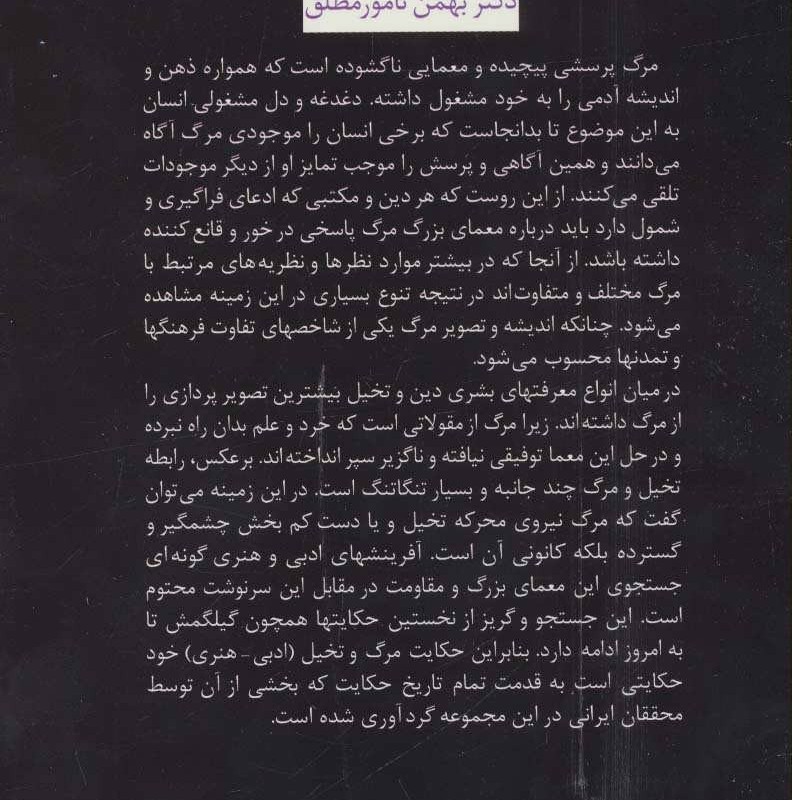 دکتر بهمن نامورمطلق
مرگ پرسشی پیچیده و معمایی ناگشوده است که همواره ذهن و
اندیشه آدمی را به خود مشغول داشته. دغدغه و دل مشغولی انسان
به این موضوع تا بدانجاست که برخی انسان را موجودی مرگ آگاه
می‌دانند و همین آگاهی و پرسش را موجب تمایز او از دیگر موجودات
تلقی می‌کنند. از این روست که هر دین و مکتبی که ادعای فراگیری و
شمول دارد باید درباره معمای بزرگ مرگ پاسخی در خور و قانع کننده
داشته باشد. از آنجا که در بیشتر موارد نظرها و نظریه‌های مرتبط با
مرگ مختلف و متفاوت‌اند در نتیجه تنوع بسیاری در این زمینه مشاهده
می‌شود. چنانکه اندیشه و تصویر مرگ یکی از شاخصهای تفاوت فرهنگها
و تمدنها محسوب می‌شود.
در میان انواع معرفتهای بشری دین و تخیل بیشترین تصویر پردازی را
از مرگ داشته‌اند. زیرا مرگ از مقولاتی است که خرد و علم بدان راه نبرده
و در حل این معما توفیقی نیافته و ناگزیر سپر انداخته‌اند. برعکس، رابطه
تخیل و مرگ چند جانبه و بسیار تنگاتنگ است. در این زمینه می‌توان
گفت که مرگ نیروی محرکه تخیل و یا دست کم بخش چشمگیر و
گسترده بلکه کانونی آن است. آفرینشهای ادبی و هنری گونه‌ای
جستجوی این معمای بزرگ و مقاومت در مقابل این سرنوشت محتوم
است. این جستجو و گریز از نخستین حکایتها همچون گیلگمش تا
به امروز ادامه دارد. بنابراین حکایت مرگ و تخیل (ادبی - هنری) خود
حکایتی است به قدمت تمام تاریخ حکایت که بخشی از آن توسط
محققان ایرانی در این مجموعه گردآوری شده است.